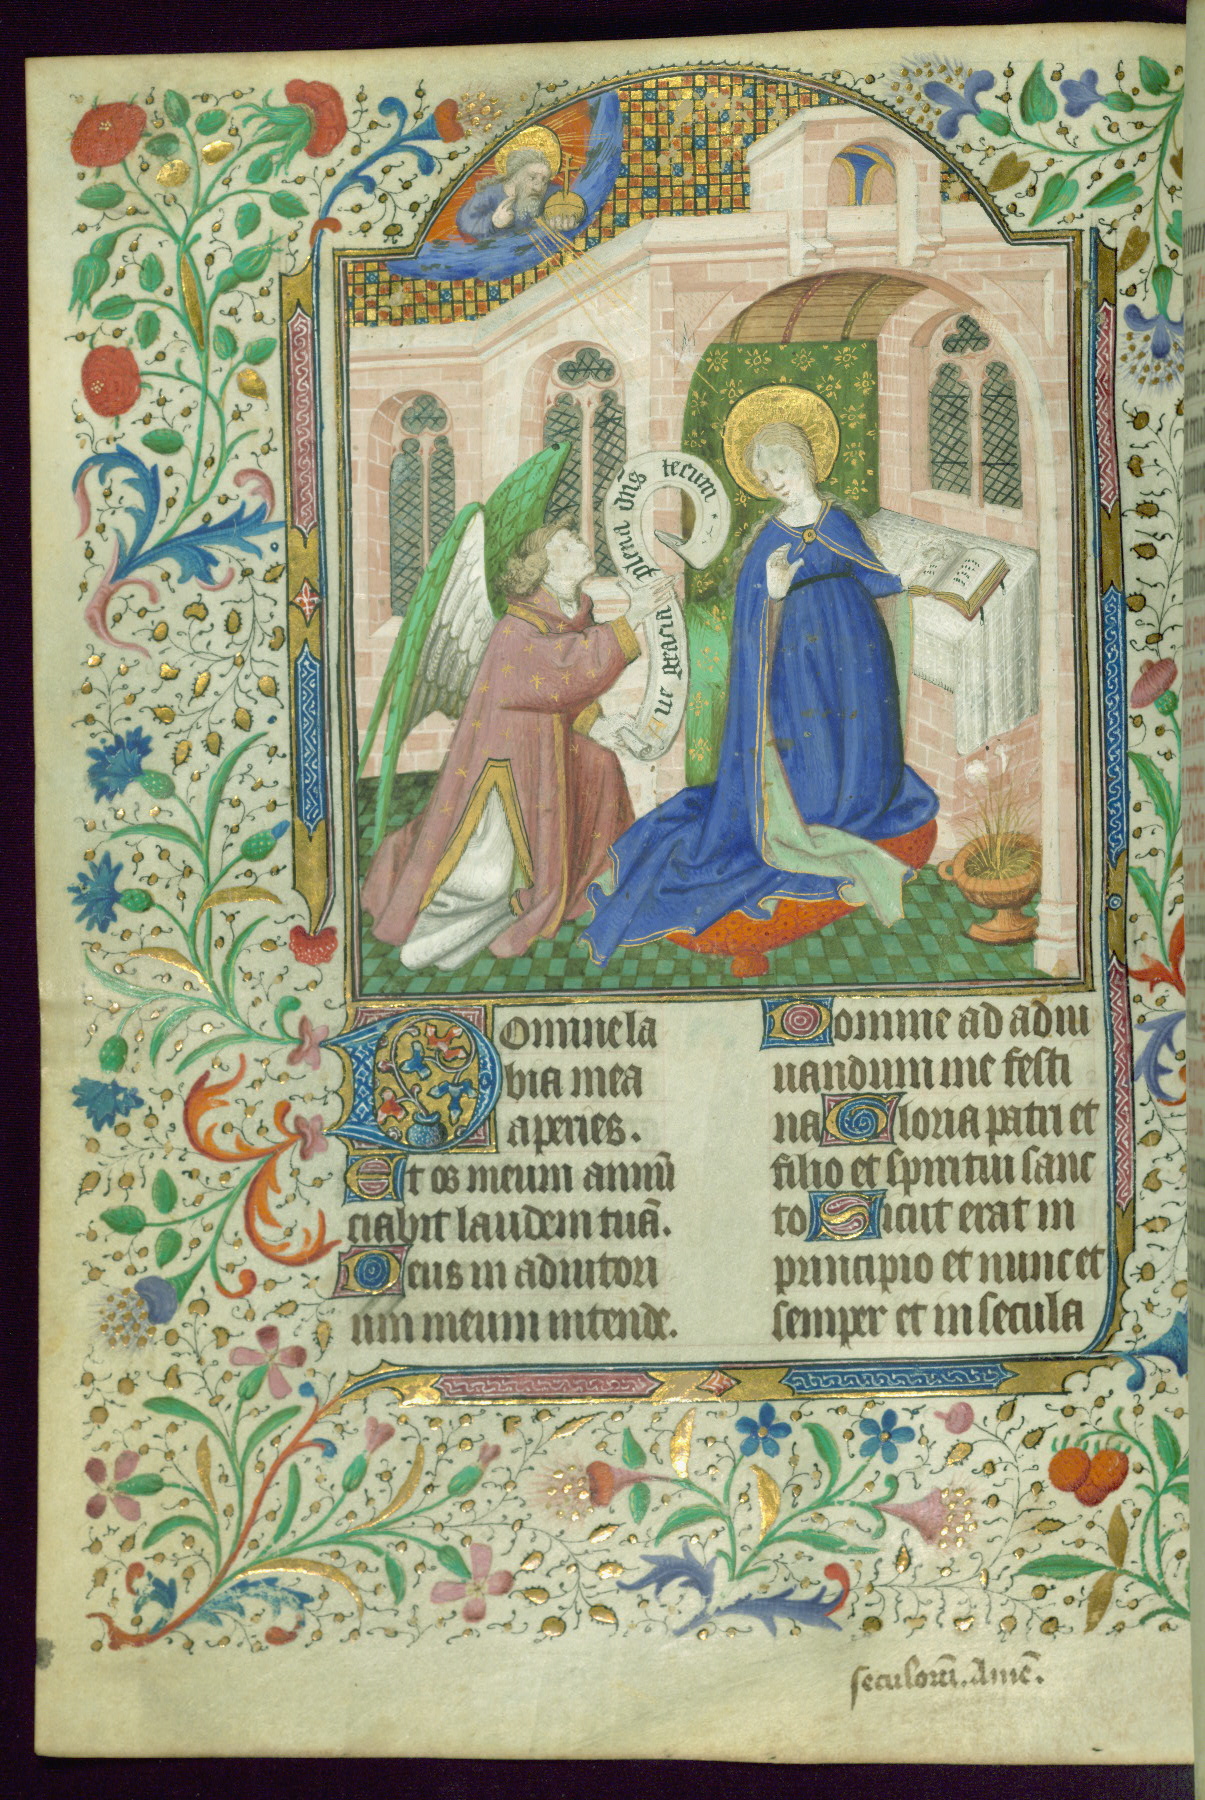 Aue gracia plena dn̄s tecum
Domine la
bia mea
aperies.
Et os meum annū
ciabit laudem tuā.
Deus in adiutori
um meum intende.
Domine ad adiu
uandum me festi
na Gloria patri et
filio et spiritui sanc
to Sicut erat in
principio et nunc et
semper et in secula
seculorū. Amē.